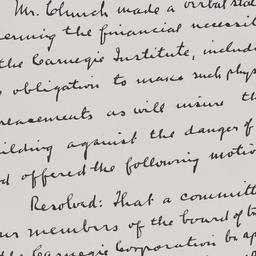 Mr. Church made a verbal stat
cerning the financial necessit
the Carnegie Institute, include
obligation to make such phys
reacements as will insure th
ilding against the danger of
d offered the following motio
Resolved: That a committ
our members of the board of tr
the Carnegie Corporation be ap